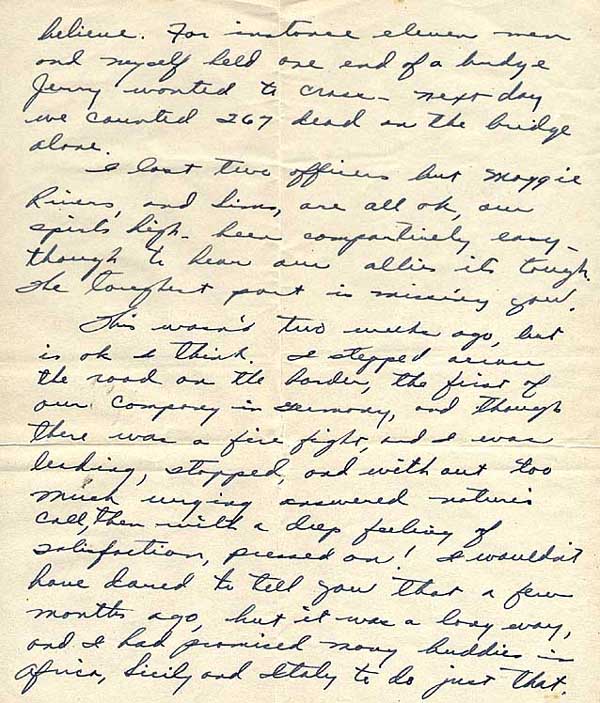 believe. For instance eleven men
and myself held one end of a bridge
Jerry wanted to cross - next day
we counted 267 dead on the bridge
alone.
I lost two officers but Maggie
Rivers, and Sims, are all ok, our
spirits high - been compartively easy -
though to hear our allies its tough.
The toughest part is missing you.
This wasn't two weeks ago, but
is ok I think. I stepped across
the road on the border, the first of
our Company in Germany, and though
there was a fire fight, and I was
leading, stopped, and with out too
much urging answered natures
call, then with a deep feeling of
satisfaction, pressed on! I wouldn't
have dared to tell you that a few
months ago, but it was a long way,
and I had promised many buddies in
Africa, Sicily and Italy to do just that.